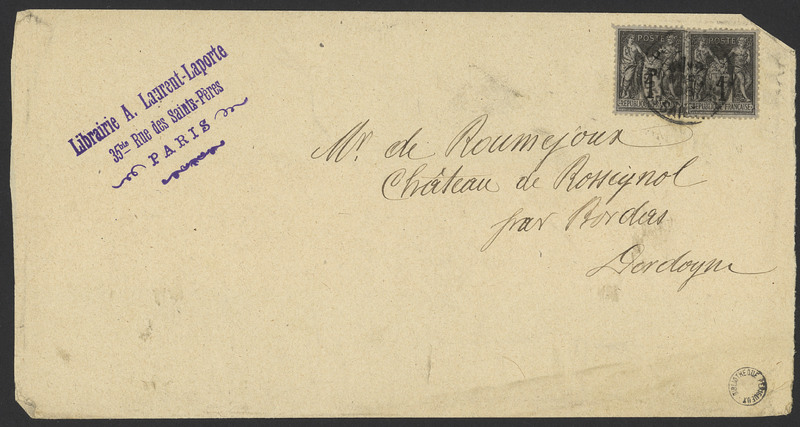 Librairie A. Laurent-Laporte
35bis Rue des Saints-Pères
PARIS
POSTE POSTE
1 1
REPUBLIQUE FRANÇAISE REPUBLIQUE FRANÇAISE
Mr. de Roumejoux
Château de Rosseynol
par Bordas
Dordogne
BIBLIOTHEQUE